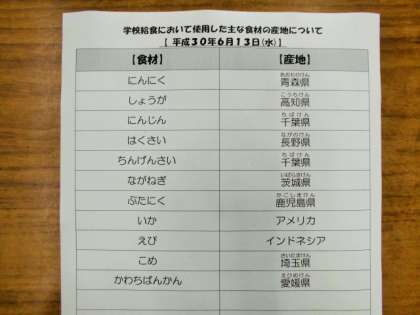 学校給食において使用した主な食材の産地について
【 平成30年6月13日(水) 】
【食材】 【産地】
にんにく 青森県
しょうが 高知県
にんじん 千葉県
はくさい 長野県
ちんげんさい 千葉県
ながねぎ 茨城県
ぶたにく 鹿児島県
いか アメリカ
えび インドネシア
こめ 埼玉県
かわちばんかん 愛媛県